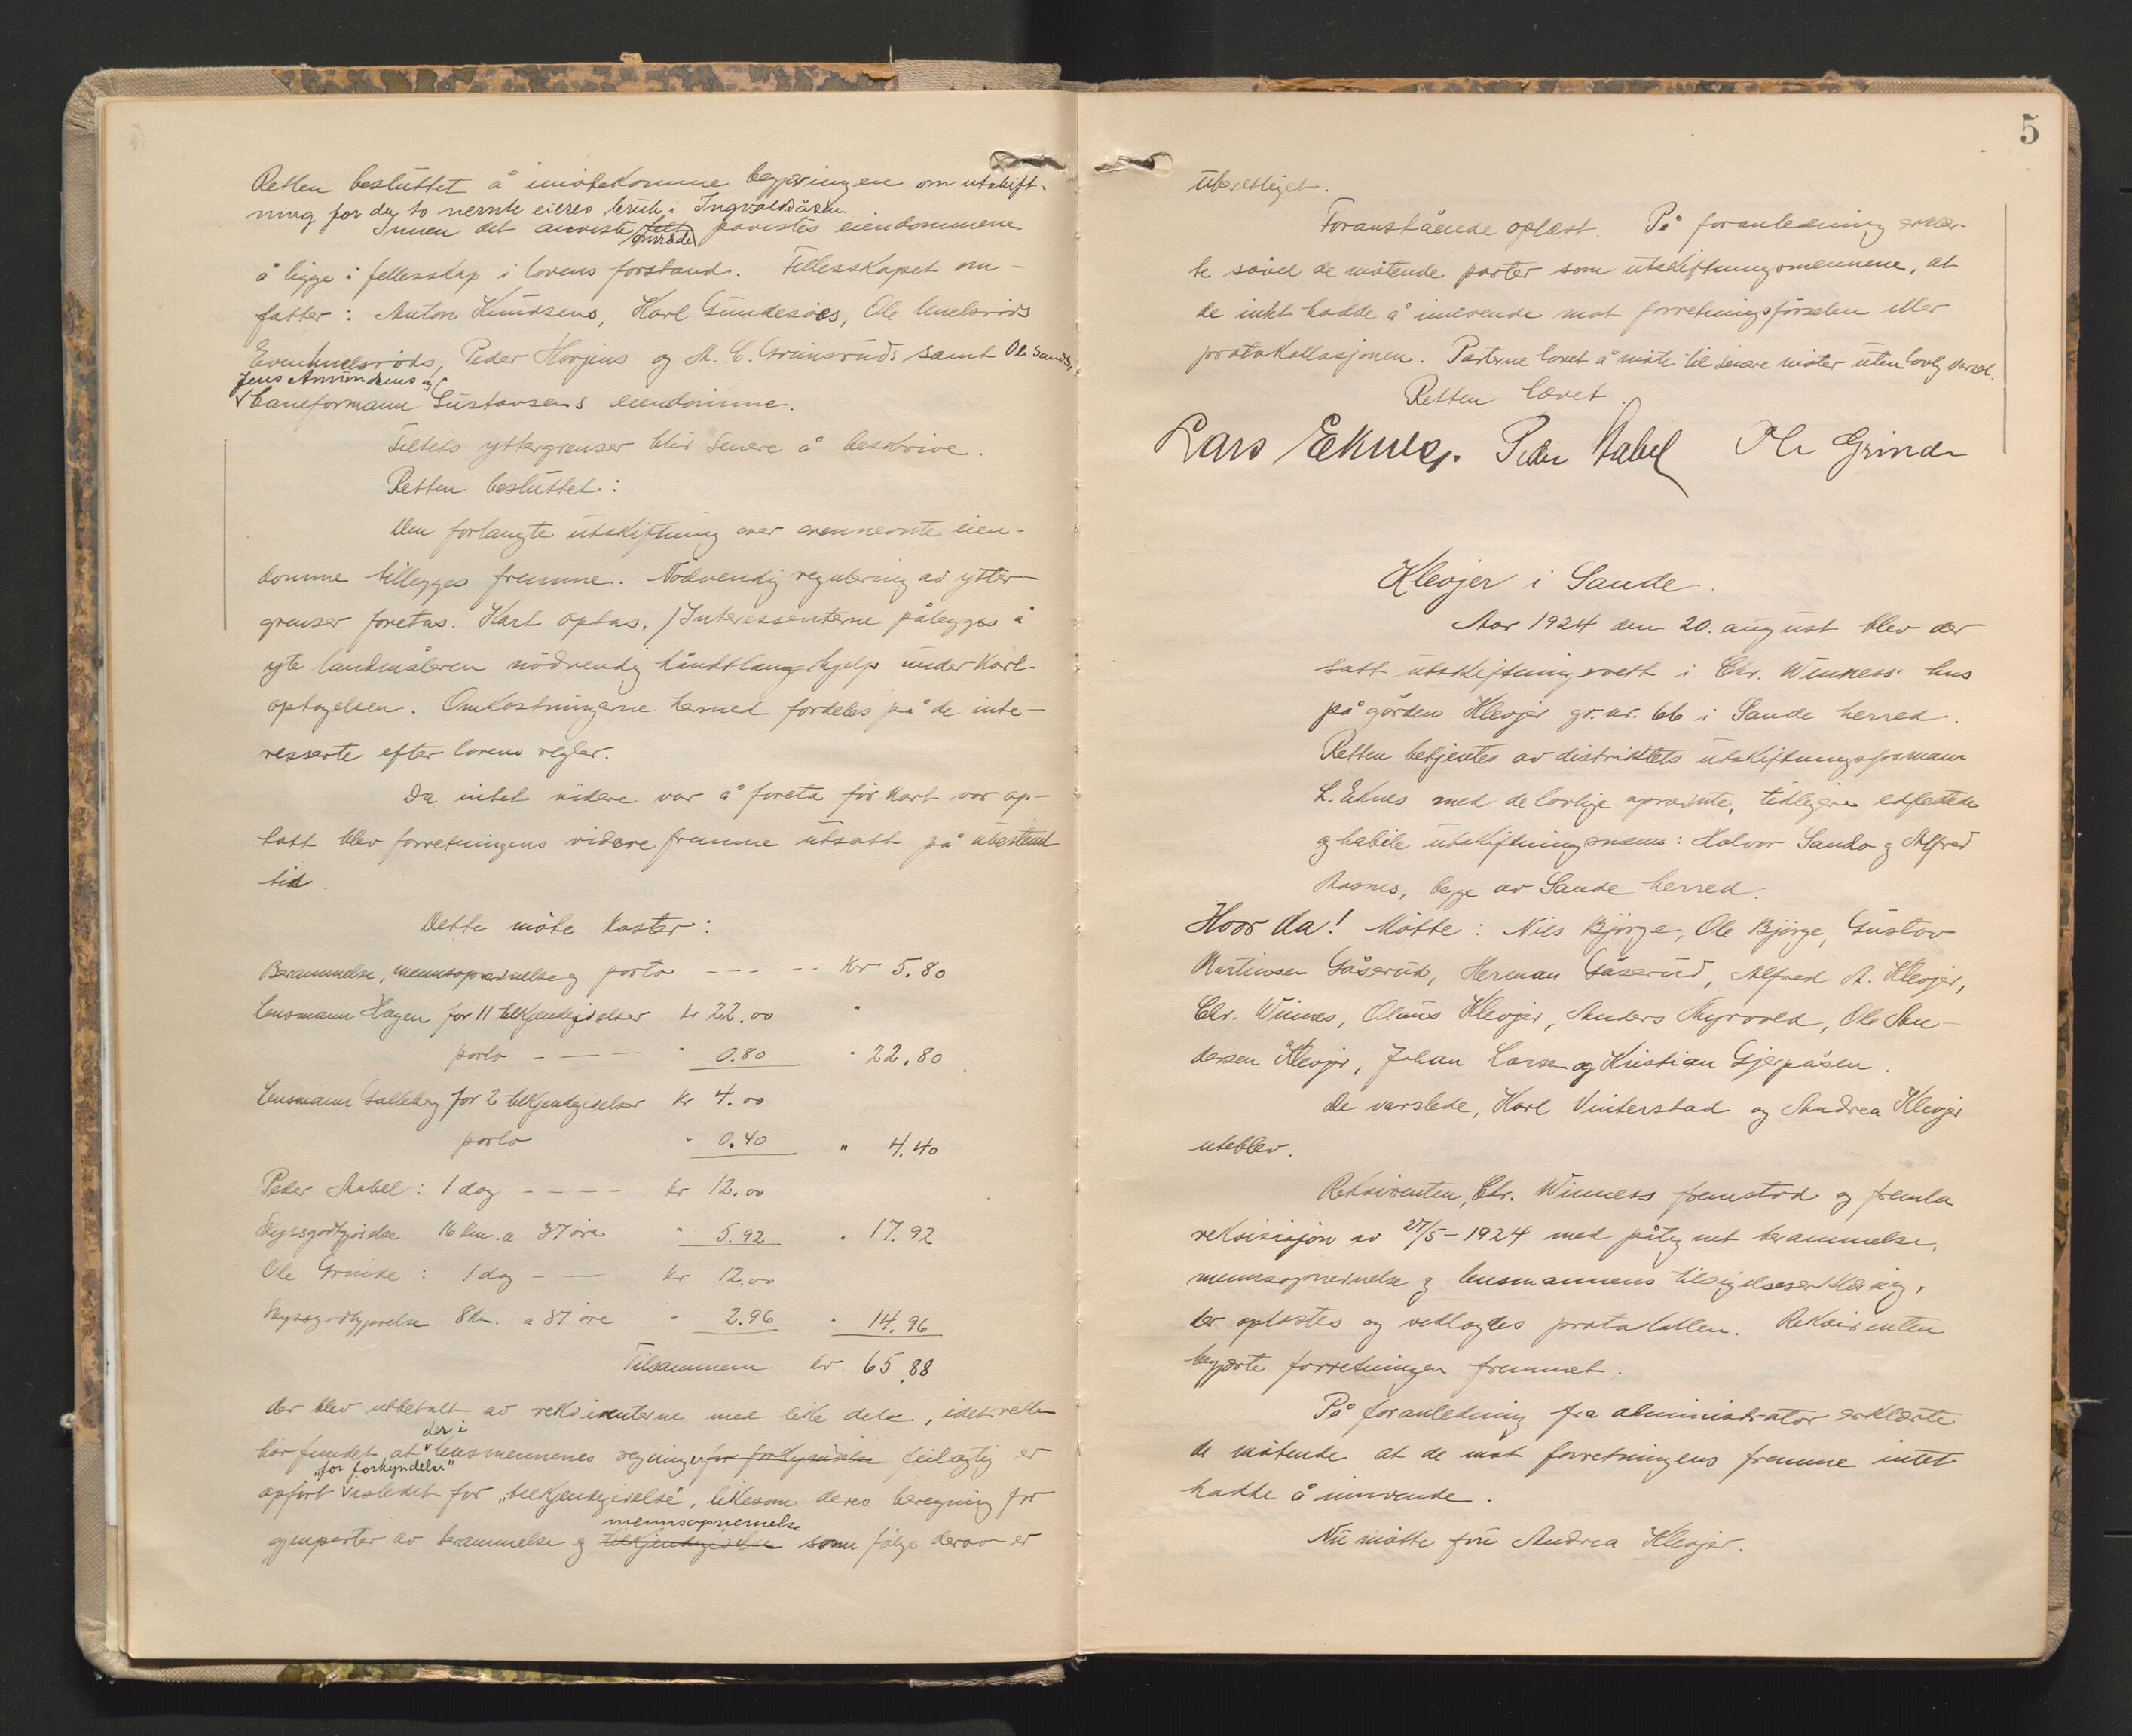 Retten besluttet å imötekomme begjæringen om utskift-
ning for de to nevnte eieres bruk i Ingvaldsåsen.
Innen det anviste felt område påvistes eiendommene
å ligge i fellesskap i lovens forstand. Fellesskapet om-
fatter: Anton Knudsens, Karl Gundesös, Ole
Peder Horjens og A. C. Grimsruds samt Ole Sands,
Jens Amundsens og
baneformann Gustavsens eiendomme.
Feltets yttergrenser blir senere å beskrive.
Retten besluttet:
Den forlangte utskiftning over ovennevnte eien-
domme tillegges fremme. Nödvendig regulering av ytter-
grenser foretas. Kart optas. Interessenterne pålegges å
yte landmåleren nödvendig håndtlangerhjelp under kart-
optagelsen. Omkostningerne hermed fordeles på de inte-
resserte efter lovens regler.
Da intet videre var å foreta för kart var op-
tatt blev forretningens videre fremme utsatt på ubestemt
tid.
Dette möte koster:
Berammelse, mennsopnevnelse og porto - - - - - Kr 5.80
Lensmann Hagen for 11 tilkjendegivelser kr 22.00
porto - - - - " 0.80 " 22.80
Lensmann Galleberg for 2 tilkjendegivelser kr 4.00
porto " 0.40 " 4.40
Peder Stabel: 1 dag - - - - kr 12.00
Skyssgodtgjörelse 16 km. a 37 öre " 5.92 " 17.92
Ole Grinde: 1 dag - - kr 12.00
Skyssgodtgjörelse 8 km. a 37 öre " 2.96 " 14.96
Tilsammen kr 65.88
der blev utbetalt av rekvirenterne med like dele, idet retten
har fundet at der i lensmennenes regninger for forkyndelse feilagtig er
opfört "for forkyndelse" istedet for "tilkjendegivelse", likesom deres beregning for
gjenparter av berammelse og tilkjendegivelse mennsopnevnelse som fölge derav er
5
uberettiget.
Foranstående oplæst. På foranledning erklær-
te såvel de mötende parter som utskiftningsmennene, at
de intet hadde å innvende mot forretningsförselen eller
protokollasjonen. Parterne lovet å möte til senere möter uten lovlig varsel.
Retten hævet.
Lars Eknes. Peder Stabel Ole Grinde
Klevjer i Sande.
Aar 1924 den 20. august blev der
satt utskiftningsrett i Chr. Winness' hus
på gården Klevjer gr. nr. 66 i Sande herred.
Retten betjentes av distriktets utskiftningsformann
L. Eknes med de lovlige opnevnte, tidligere edfestede
og habile utskiftningsmenn: Halvor Sando og Alfred
begge av Sande herred.
Hvor da! Mötte: Nils Björge, Ole Björge, Gustav
Martinsen Gåserud, Herman Gåserud, Alfred A. Klevjer,
Chr. Winnes, Olaus Klevjer, Anders Myrvold, Ole An-
dersen Klevjer, Johan Larsen og Kristian Gjerpåsen.
De varslede, Karl Vinterstad og Andrea Klevjer
uteblev.
Rekvirenten, Chr. Winness fremstod og fremla
rekvisisjon av 27/5-1924 med påtegnet berammelse,
mennsopnevnelse og lensmannens tilsigelseserklæring,
der oplæstes og vedlagdes protokollen. Rekvirenten
begjærte forretningen fremmet.
På foranledning fra administrator erklærte
de mötende at de mot forretningens fremme intet
hadde å innvende.
Nu mötte fru Andrea Klevjer.